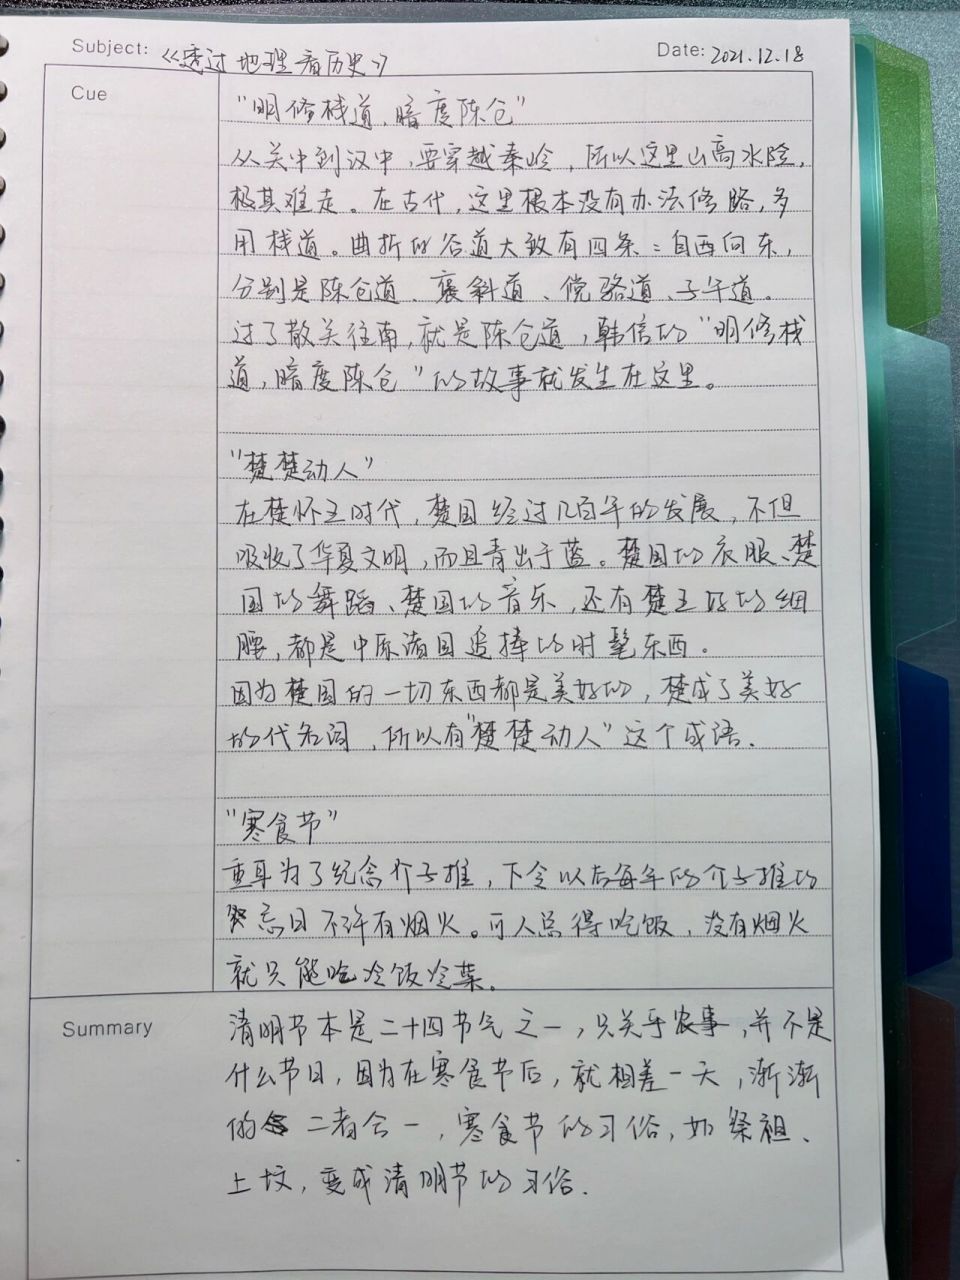 Subject: 《透过地理看历史》
Date: 2021.12.18
Cue
"明修栈道,暗度陈仓"
从关中到汉中,要穿越秦岭,所以这里山高水险,
极其难走。在古代,这里根本没有办法修路,多
用栈道。曲折的谷道大致有四条:自西向东,
分别是陈仓道、褒斜道、傥骆道、子午道。
过了散关往南,就是陈仓道,韩信的"明修栈
道,暗度陈仓"的故事就发生在这里。
"楚楚动人"
在楚怀王时代,楚国经过几百年的发展,不但
吸收了华夏文明,而且青出于蓝。楚国的衣服、楚
国的舞蹈、楚国的音乐,还有楚王好的细
腰,都是中原诸国追捧的时髦东西。
因为楚国的一切东西都是美好的,楚成了美好
的代名词,所以有"楚楚动人"这个成语.
"寒食节"
重耳为了纪念介子推,下令以后每年的介子推的
忌日不许有烟火。可人总得吃饭,没有烟火
就只能吃冷饭冷菜。
Summary
清明节本是二十四节气之一,只关乎农事,并不是
什么节日,因为在寒食节后,就相差一天,渐渐
的 二者合一,寒食节的习俗,如祭祖、
上坟,变成清明节的习俗.